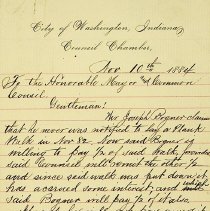 City of Washington, Indiana,
Council Chamber,
Nov 10th 1884
To the Honorable Mayor and Common
Council
Gentleman:
Mr Joseph Bogner claims
that he never was notified to lay a Plank
Walk in Nov 82. Now said Bogner is
willing to pay 1/2 of said Walk, provided
said Council will remit the other 1/2
and since said walk was put down, it
has accrued some interest, and
said Bogner will pay 1/2 of it also.